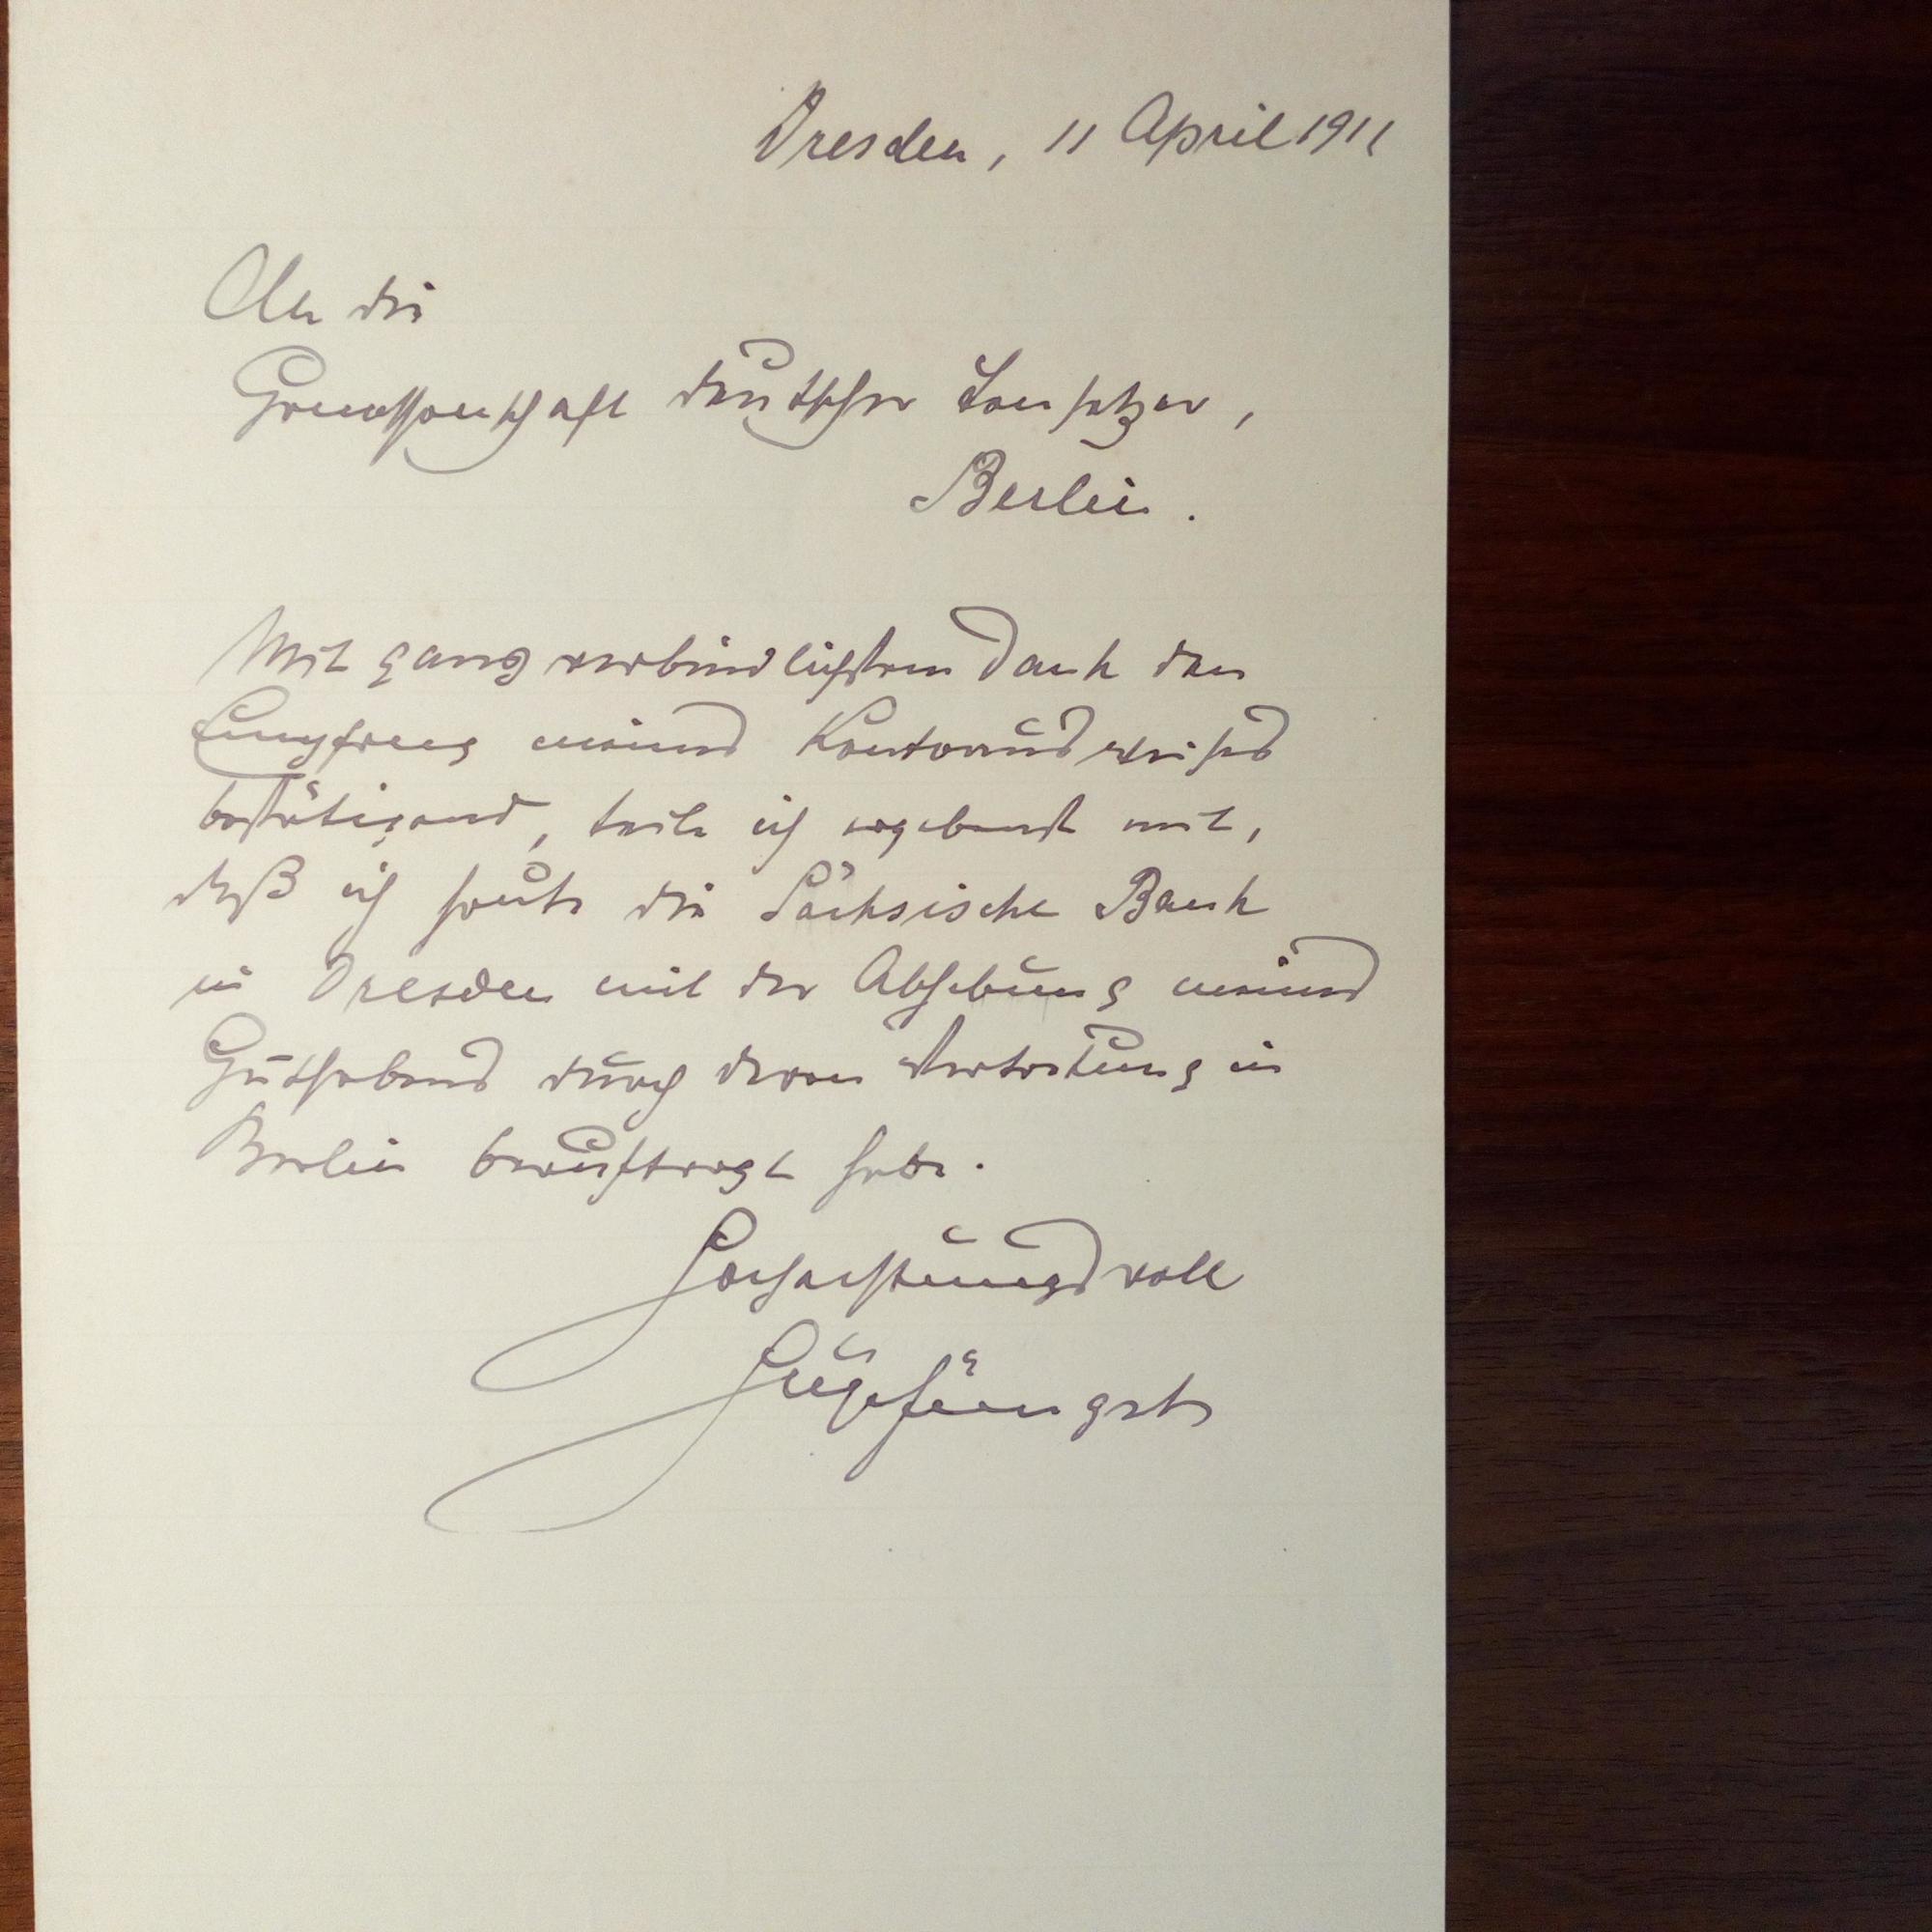 Dresden, 11 April 1911
An die
Genossenschaft deutscher Tonsetzer,
Berlin.
Mit ganz verbindlichstem Dank den
Empfang meines Kontoausweises
bestätigend, teile ich ergebenst mit,
daß ich heute die Sächsische Bank
in Dresden mit der Abhebung meines
Guthabens durch deren Vertretung in
Berlin beauftragt habe.
Hochachtungsvoll